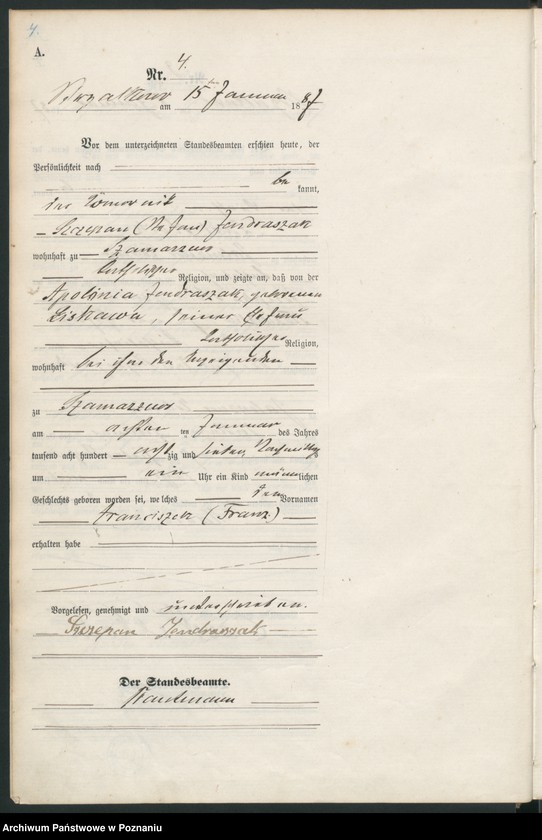 4.
A.
Nr. 4.
am 15ten Januar 1887
Vor dem unterzeichneten Standesbeamten erschien heute, der
Persönlichkeit nach
be kannt,
der Komornik
Szczepan (Stefan) Jendraszak
wohnhaft zu Szamarzewo
katholischer Religion, und zeigte an, daß von der
Apolonia Jendraszak, geborenen
Liskawa, seiner Ehefrau
katholischer Religion,
wohnhaft bei ihm dem Anzeigenden
zu Szamarzewo
am achten ten Januar des Jahres
tausend acht hundert acht zig und sieben, Nachmittags
um ein Uhr ein Kind männlichen
Geschlechts geboren worden sei, welches den Vornamen
Franciszek (Franz)
erhalten habe
Vorgelesen, genehmigt und unterschrieben.
Szczepan Jendraszak
Der Standesbeamte.
Archiwum Państwowe w Poznaniu